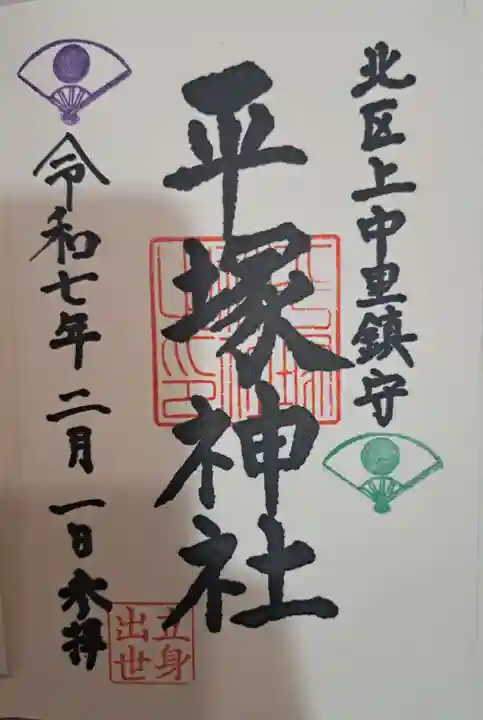 北区上中里鎮守
平塚神社
令和七年二月一日参拝
立身
出世